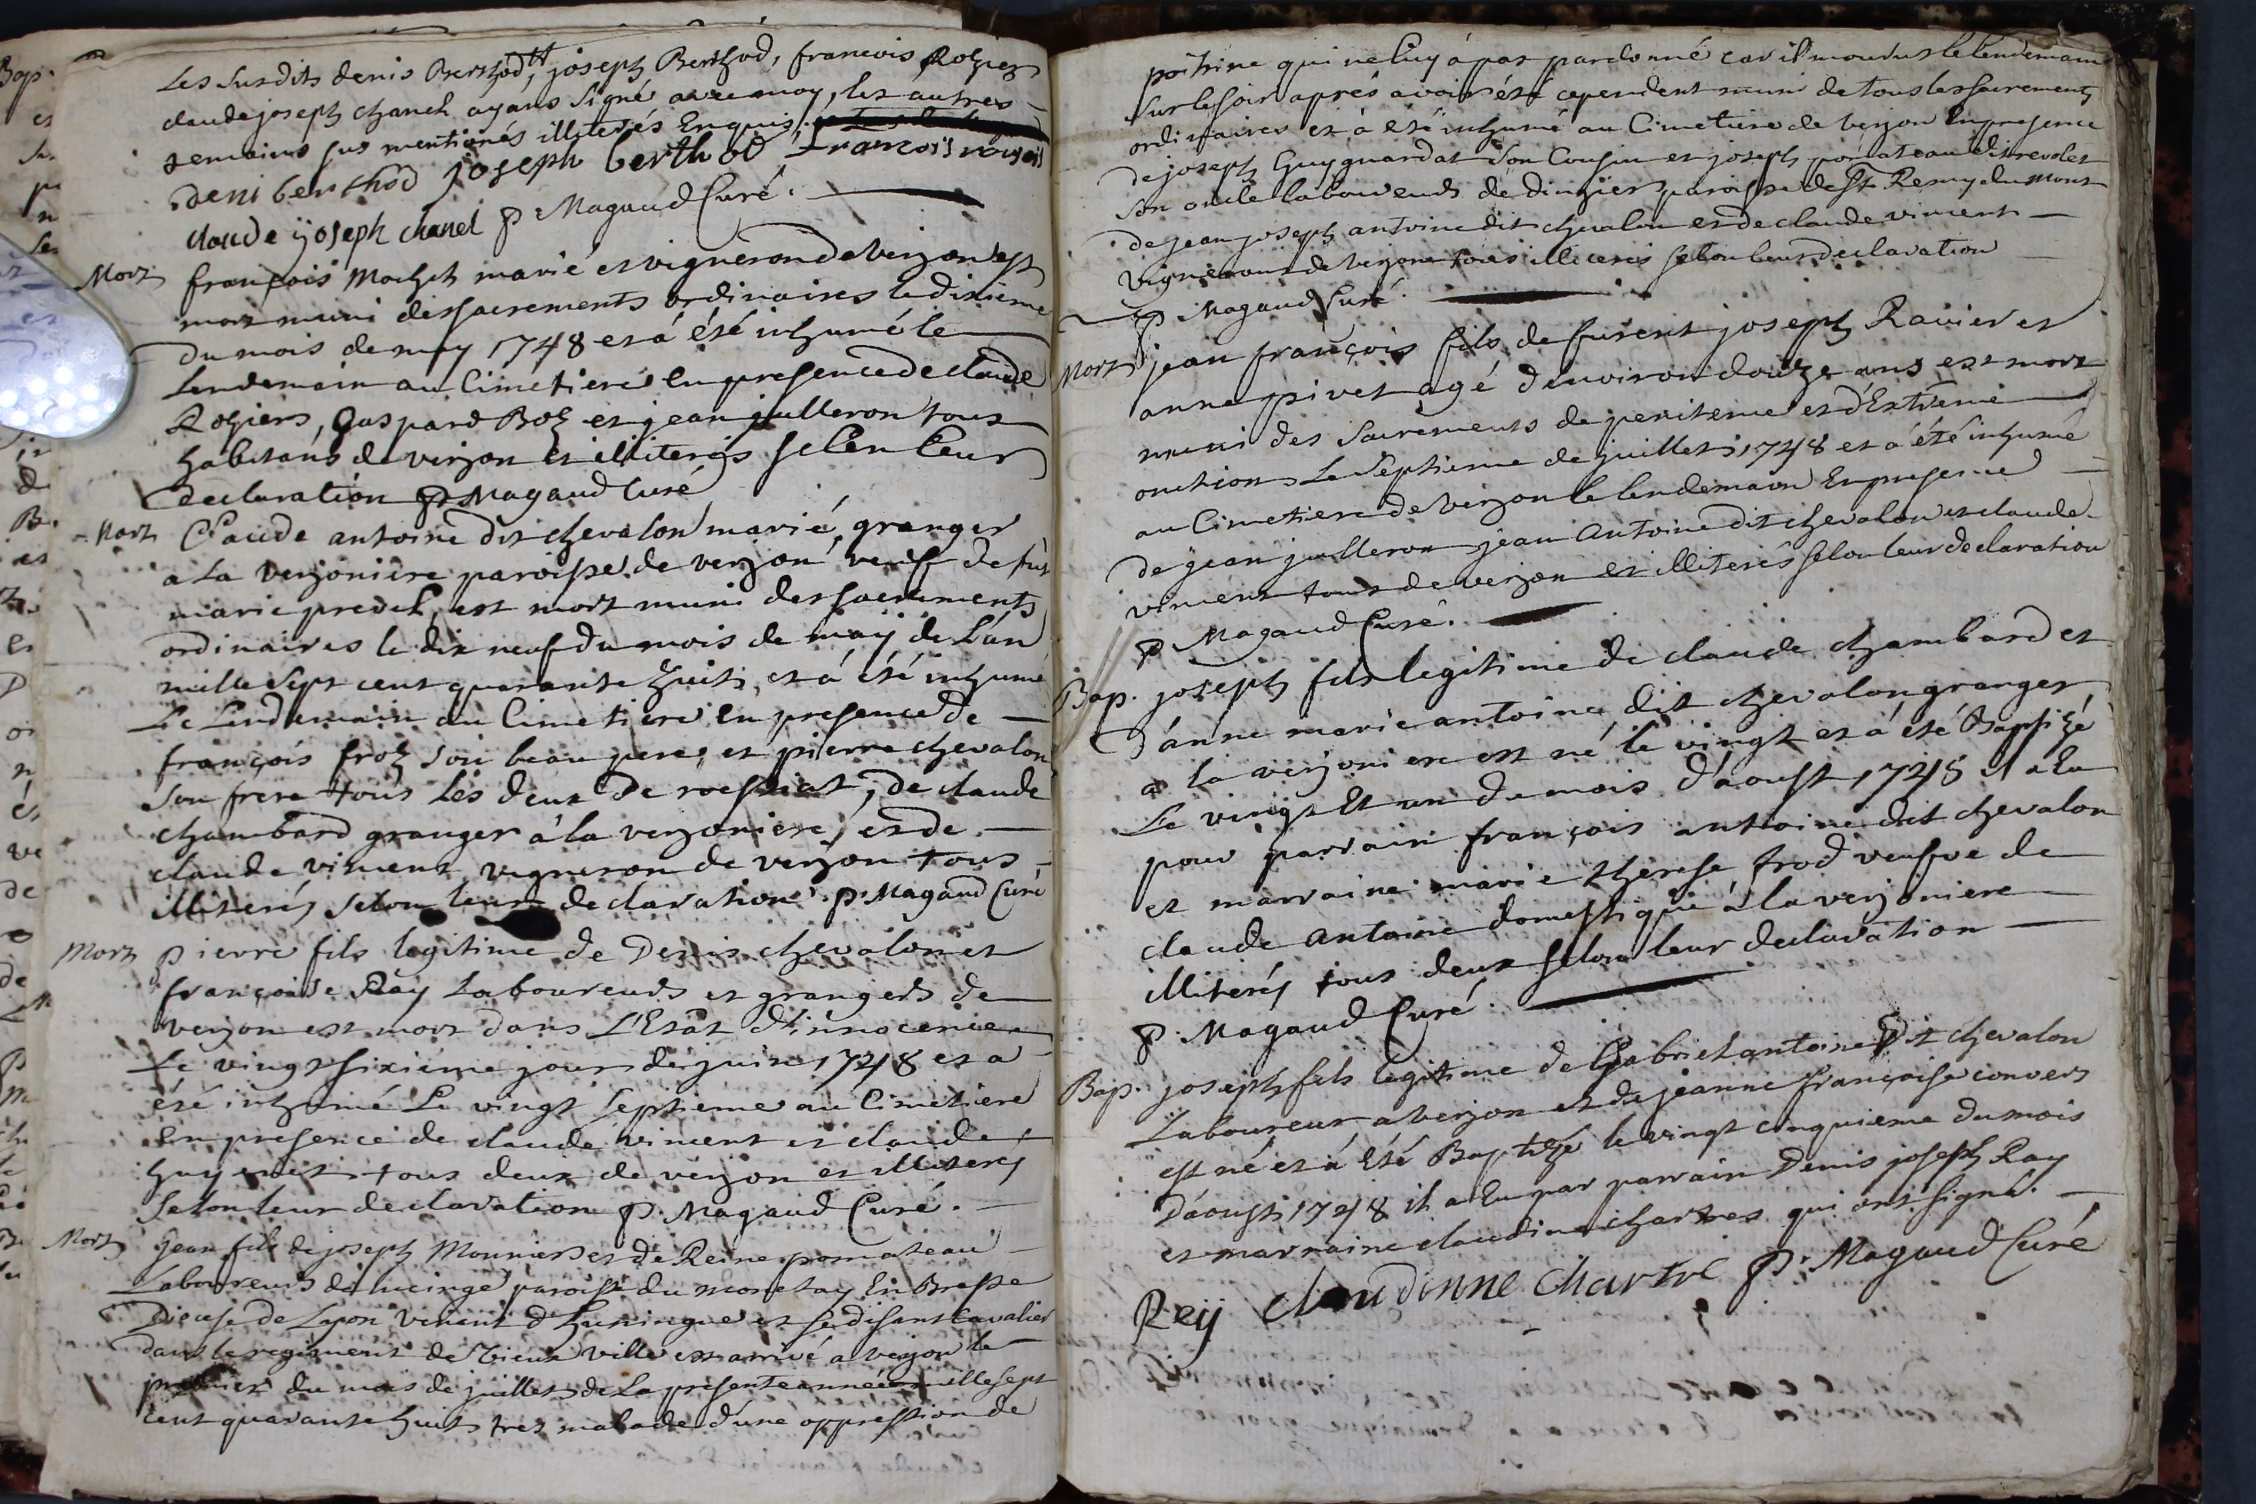 Les susdits denis Berthod, joseph Berthod, francois Rogiers
claude joseph chanel ayans signé avec moy, les autres
temoins sus mentionés illiterés Enquis.
deni berthod joseph berthod francois rogies
claude ijoseph chanel P. Magaud Curé.
Mort françois mochet marié et vigneron de verjon est
mort muni des sacrements ordinaires le dixieme
du mois de may 1748 et á été inhumé le
lendemain au Cimetiere En presence de claude
Rogiers, Gaspard Boz et jean julleron tous
habitans de verjon et illiterés selon leur
declaration P. Magaud Curé
Mort Claude antoine dit chevalon marié, granger
a La verjoniere paroisse de verjon veuf de fut
marie predel, est mort muni des sacrements
ordinaires le dix neuf du mois de maij de L'an
mille sept cent quarante huit, et á été inhumé
Le Lendemain au Cimetiere En presence de
françois froz son beau pere, et pierre chevalon
son frere tous les deux de roissiat, de claude
chambard granger á la verjoniere, et de
claude vincent vigneron de verjon tous
illiterés selon leur declaration. P. Magaud Curé
Mort pierre fils legitime de Denis chevalon et
françoise Ray Laboureurs et grangers de
verjon est mort dans L'Etat d'innocence
Le vingt sixieme jour de juin 1748 et a
été inhumé Le vingt septieme au Cimetiere
En presence de claude vincent et claude
huyenet tous deux de verjon et illiterés
selon leur declaration P. Magaud Curé.
Mort Jean fils de joseph Monniers et de Reine pomateau
Laboureurs de lucinge paroisse du monetay En Bresse
Diocese de Lyon venant d'huningue et se disant cavalier
dans le regiment de vieux ville est arrivé a verjon le
premier du mois de juillet de La presente année mille sept
cent quarante huit, tres malade d'une oppression de
poitrine qui ne luy á pas pardonné car il mourut le lendemain
sur le soir aprés avoir été cependent muni de tous les sacrements
ordinaires et á été inhumé au Cimetiere de verjon En presence
de joseph Guyguardat son Cousin et joseph pomateau dit revolet
son oncle laboureurs de dingier paroisse de St Remy du Mont
de jean joseph antoine dit chevalon et de claude vincent
vignerons de verjon tous illiterés selon leur declaration
P Magaud Curé.
Mort jean françois fils de furent joseph Ravier et
anne pivet agé d'environ douze ans est mort
muni des sacrements de penitence et d'Extreme
onction Le septieme de juillet 1748 et a été inhumé
au Cimetiere de verjon le lendemain En presence
de jean julleron jean Antoine dit chevalon et claude
vincent tous de verjon et illiterés selon leur declaration
P Magaud Curé.
Bap. joseph fils legitime de claude chambard et
d'anne marie antoine dit chevalon granger
a la verjoniere est né le vingt et á été Baptizé
Le vingt Et un du mois d'aoust 1748 il a Eu
pour parrain françois antoine dit chevalon
et marraine marie therese frod veufve de
claude antoine domestique á la verjoniere
illiterés tous deux selon leur declaration
P. Magaud Curé.
Bap. joseph fils legitime de Gabriel antoine Dit chevalon
Laboureur a verjon et de jeanne françoise convers
est né et á Eté Baptizé le vingt cinquieme du mois
D'aoust 1748 il a Eu par parrain Denis joseph Ray
et marraine claudine chartres qui ont signé.
Reij claudinne chartre P. Magaud Curé